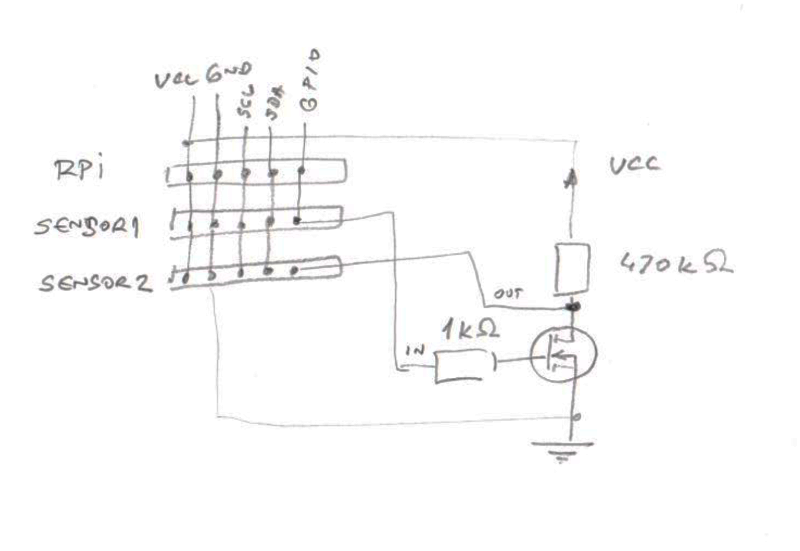 VCC GND SCL SDA GPIO
RPi
VCC
SENSOR1
SENSOR2
470kΩ
OUT
1kΩ
IN